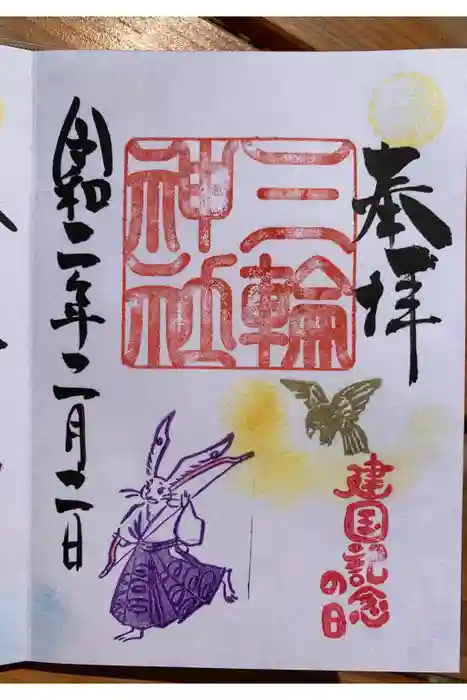 奉拝
建国記念
の日
三輪
神社
令和二年二月二日